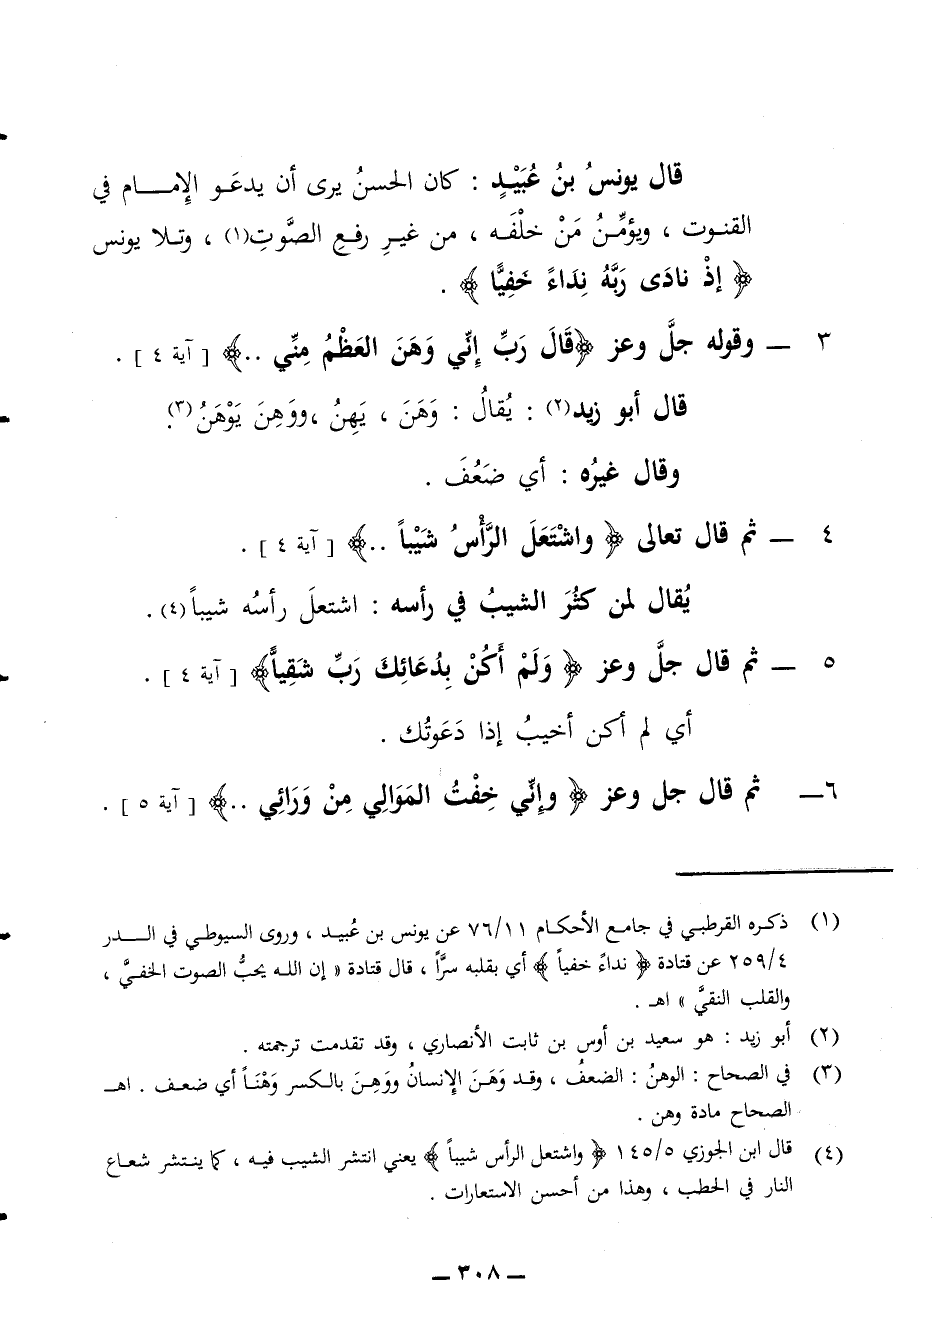 قال يونسُ بنُ عُبَيْدٍ : كان الحسنُ يرى أن يدعَو الإِمـــام في
القنوت ، ويؤمِّنُ مَنْ خلْفَه ، من غيرِ رفعِ الصَّوتِ(١) ، وتـلا يونس
﴿ إذْ نادَى رَبَّهُ نِدَاءً خَفِيًّا ﴾ .
٣ ــ وقوله جلَّ وعز ﴿قَالَ رَبِّ إِنِّي وَهَنَ العَظْمُ مِنِّي ..﴾ [ آية ٤ ] .
قال أبو زيد(٢) : يُقالُ : وَهَنَ ، يَهِنُ ،ووَهِنَ يَوْهَنُ(٣).
وقال غيرُه : أي ضَعُفَ .
٤ ــ ثم قال تعالى ﴿ واشْتَعَلَ الرَّأْسُ شَيْباً ..﴾ [ آية ٤ ] .
يُقال لمن كثُرَ الشيبُ في رأسه : اشتعلَ رأسُه شيباً(٤).
٥ ــ ثم قال جلَّ وعز ﴿ وَلَمْ أَكُنْ بِدُعَائِكَ رَبِّ شَقِياًّ﴾ [ آية ٤ ] .
أي لم أكن أخيبُ إذا دَعَوتُك .
٦ــ ثم قال جل وعز ﴿ وإنِّي خِفْتُ المَوَالِي مِنْ وَرَائِي ..﴾ [ آية ٥ ] .
(١) ذكره القرطبي في جامع الأحكام ٧٦/١١ عن يونس بن عُبيد ، وروى السيوطي في الــدر
٢٥٩/٤ عن قتادة ﴿ نداءً خفياً ﴾ أي بقلبه سرًّا ، قال قتادة « إن الله يحبُّ الصوت الخفيَّ ،
والقلب النقيَّ » اهـ .
(٢) أبو زيد : هو سعيد بن أوس بن ثابت الأنصاري ، وقد تقدمت ترجمته .
(٣) في الصحاح : الوهنُ : الضعفُ ، وقـد وَهَـنَ الإِنسانُ ووَهِـنَ بالكسر وَهْنَـاً أي ضعـف . اهـ
الصحاح مادة وهن .
(٤) قال ابن الجوزي ١٤٥/٥ ﴿ واشتعل الرأس شيباً ﴾ يعني انتشر الشيب فيه ، كما ينـتشر شعـاع
النار في الحطب ، وهذا من أحسن الاستعارات .
ــ ٣٠٨ ــ